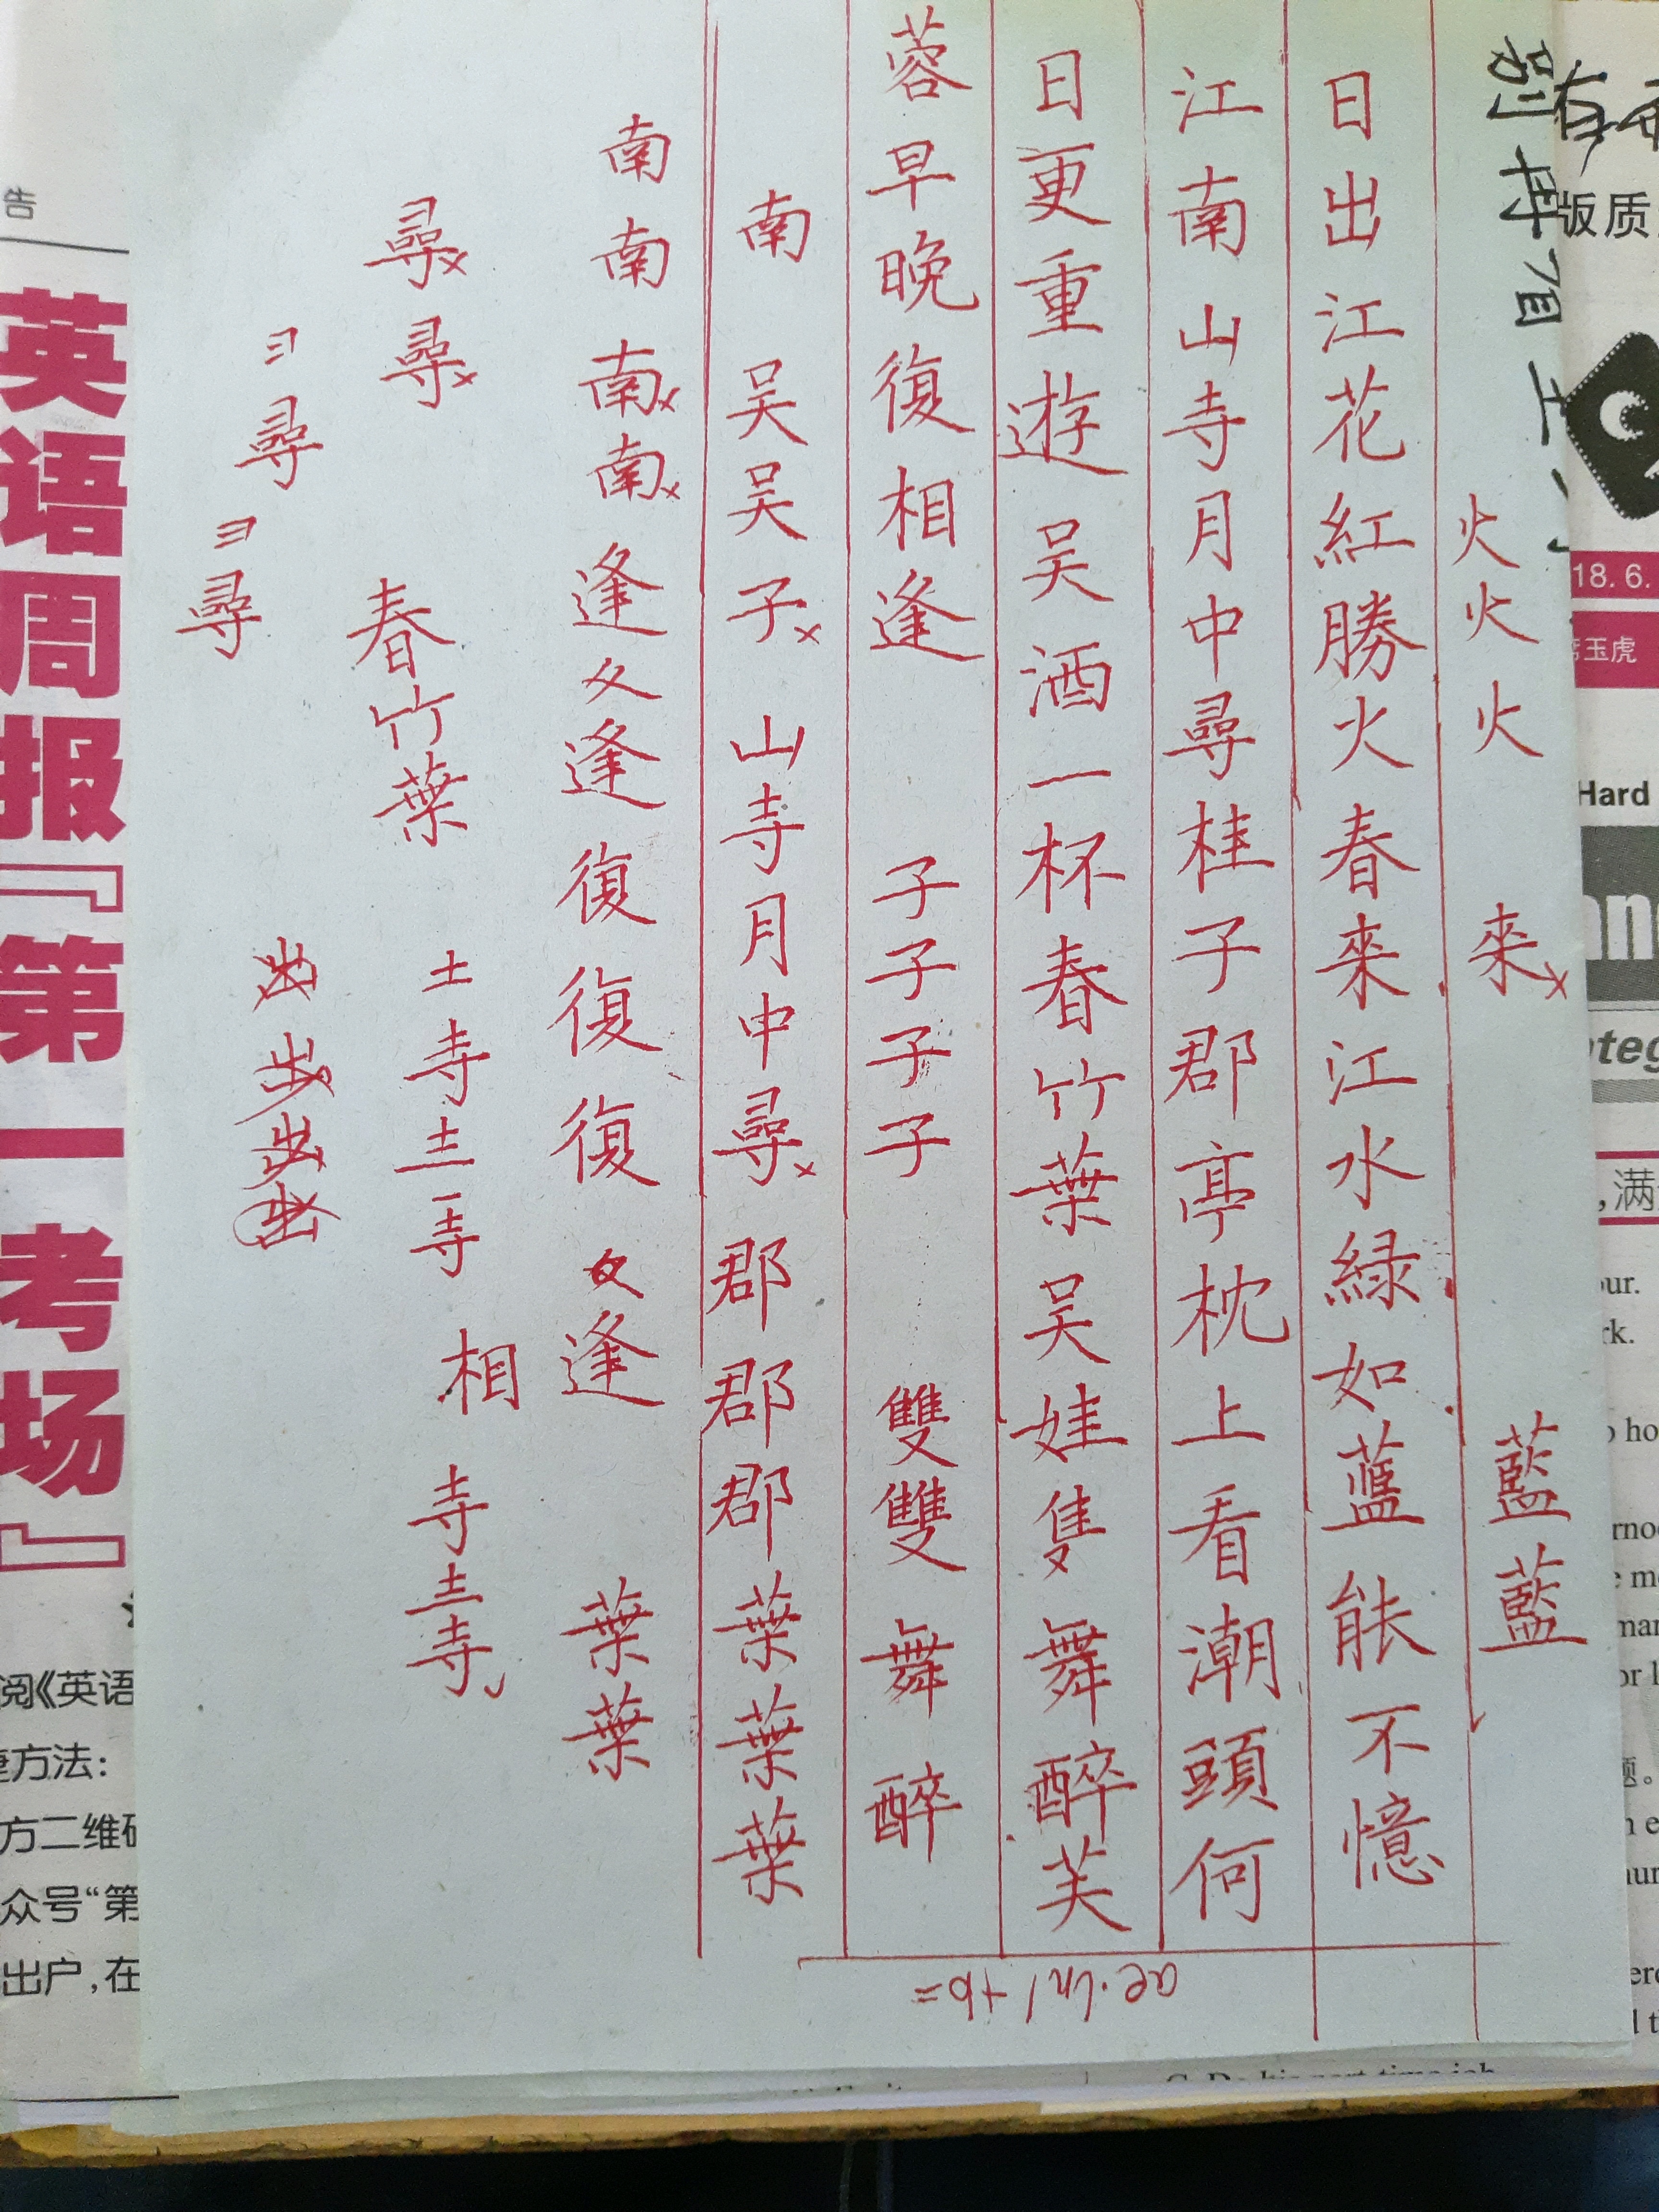 火火火來藍藍
日出江花紅勝火春來江水緑如藍能不憶
江南山寺月中尋桂子郡亭枕上看潮頭何
日更重遊吳酒一杯春竹葉吳娃隻舞醉芙
蓉早晚復相逢
子子子子雙雙舞醉
南吳吳子山寺月中尋郡郡郡葉葉葉
南南南南逢夂逢復復復夂逢葉葉
尋尋春竹葉土寺土寺相寺土寺
彐尋彐尋
ae·ln1+b=
告
英语周报『第一考场』
阅《英语
方法:
方二维码
众号“第
出户,在
版质
18.6.
玉虎
Hard
,满
our.
rk.
题。